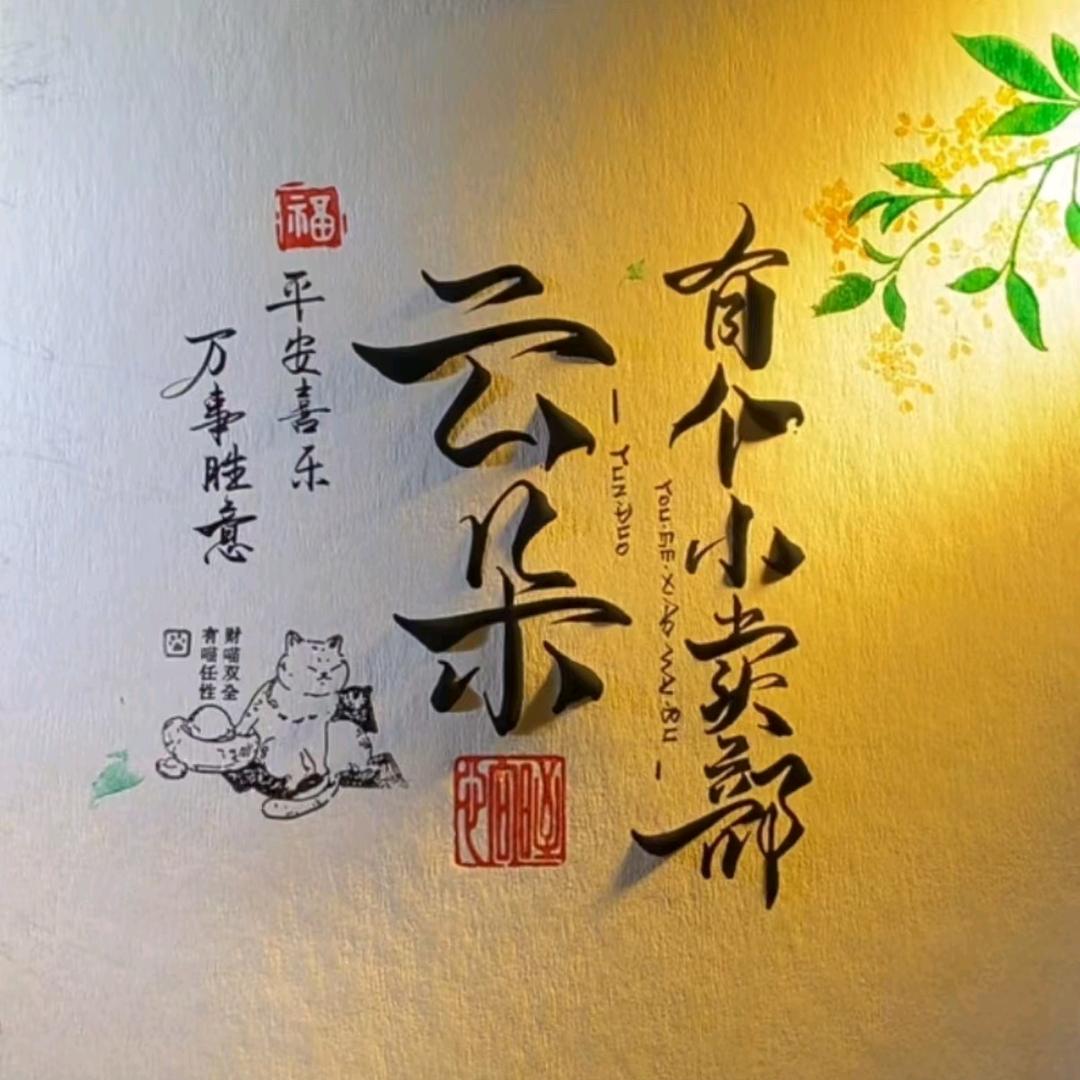 有个小卖部
YOU.GE.XIAO.MAI.BU
YUN.DUO
云朵
福
平安喜乐
万事胜意
财喵双全
有喵任性